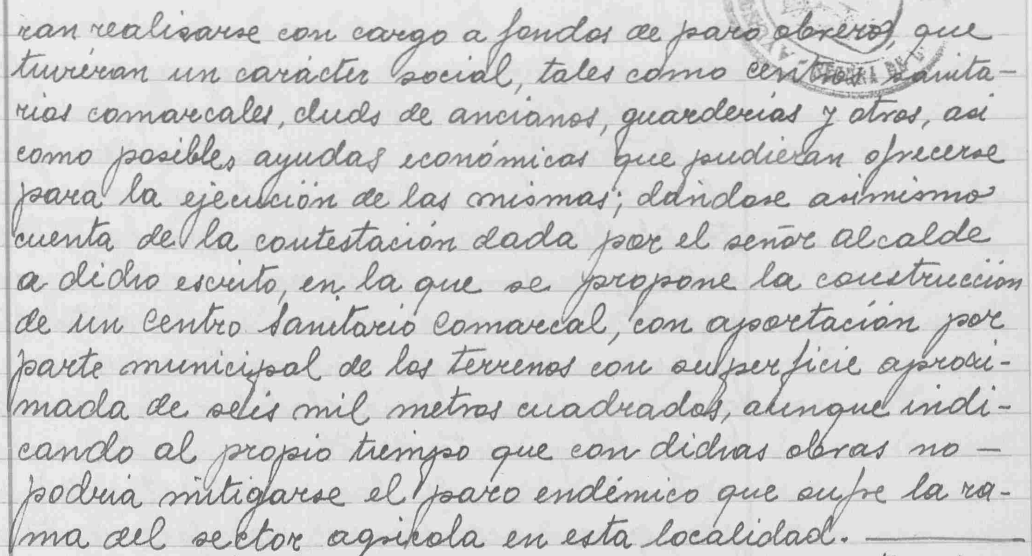 ran realisarse con cargo a fondos de paro obrero, que
tuvieran un carácter social, tales como centros sanita-
rios comarcales, clubs de ancianos, guarderias y otros, asi
como posibles ayudas económicas que pudieran ofrecerse
para la ejecución de las mismas; dándose asimismo
cuenta de la contestación dada por el señor Alcalde
a dicho escrito, en la que se propone la construcción
de un Centro Sanitario Comarcal, con aportación por
parte municipal de los terrenos con superficie aproxi-
mada de seis mil metros cuadrados, aunque indi-
cando al propio tiempo que con dichas obras no -
podria mitigarse el paro endémico que sufre la ra-
ma del sector agricola en esta localidad.